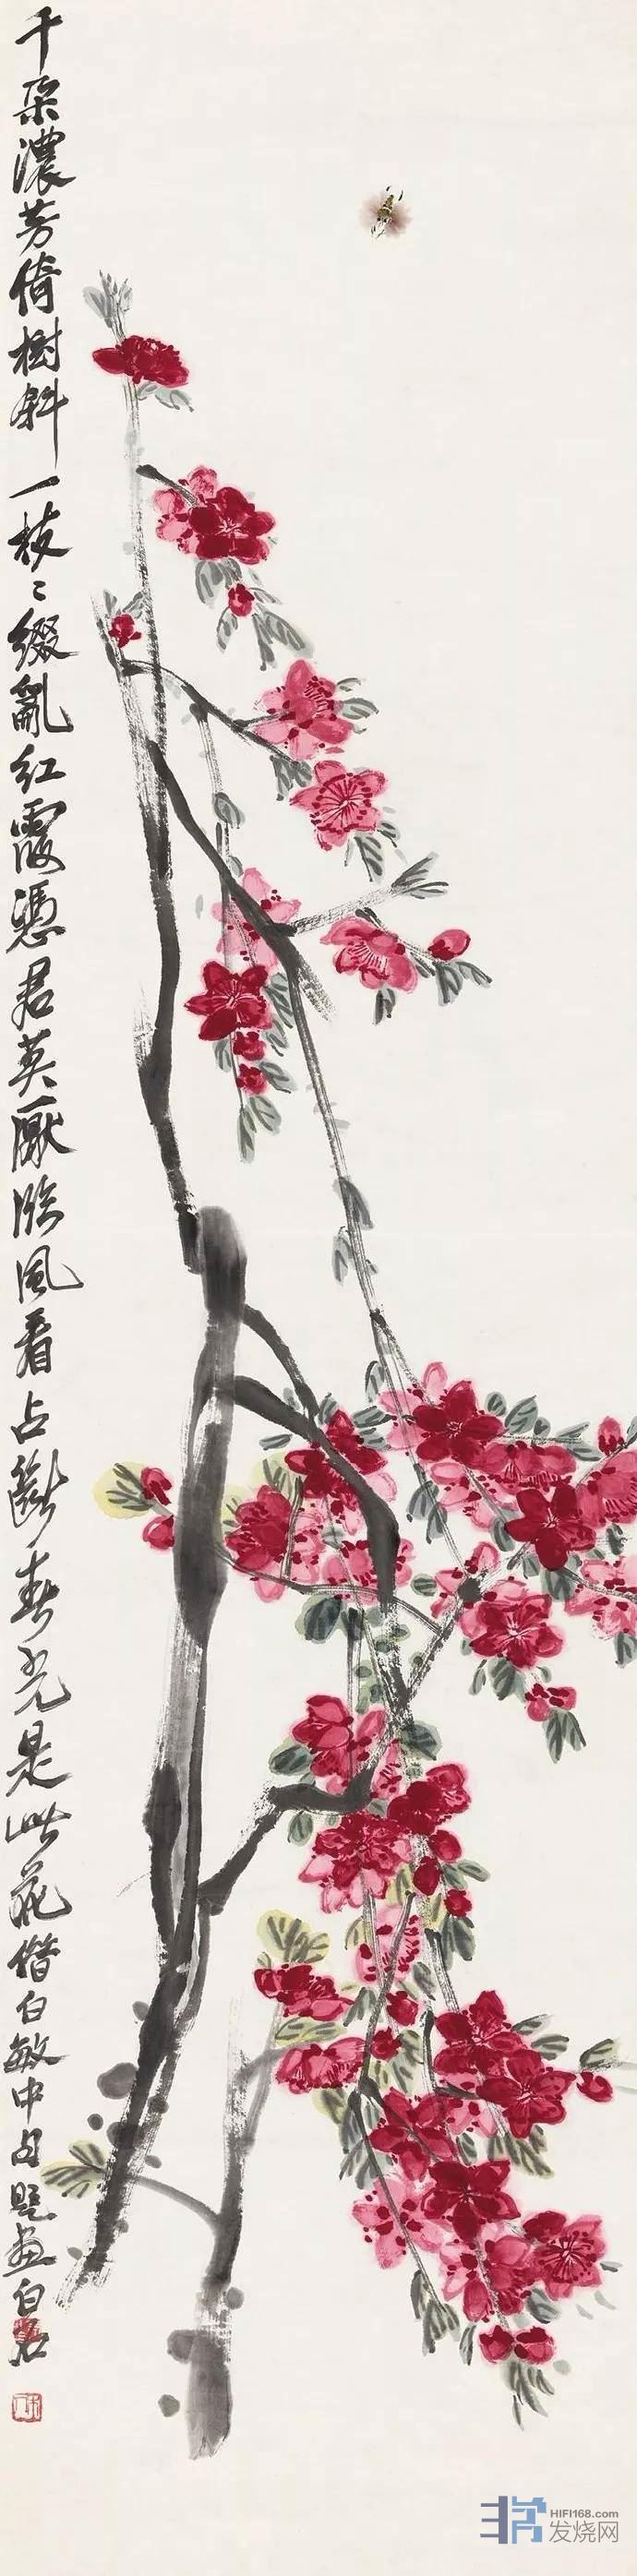 千朵濃芳倚樹斜一枝〻綴亂紅霞憑君莫厭臨風看占斷春光是此花借白敏中句題畫白石
HIFI168.com
发烧网